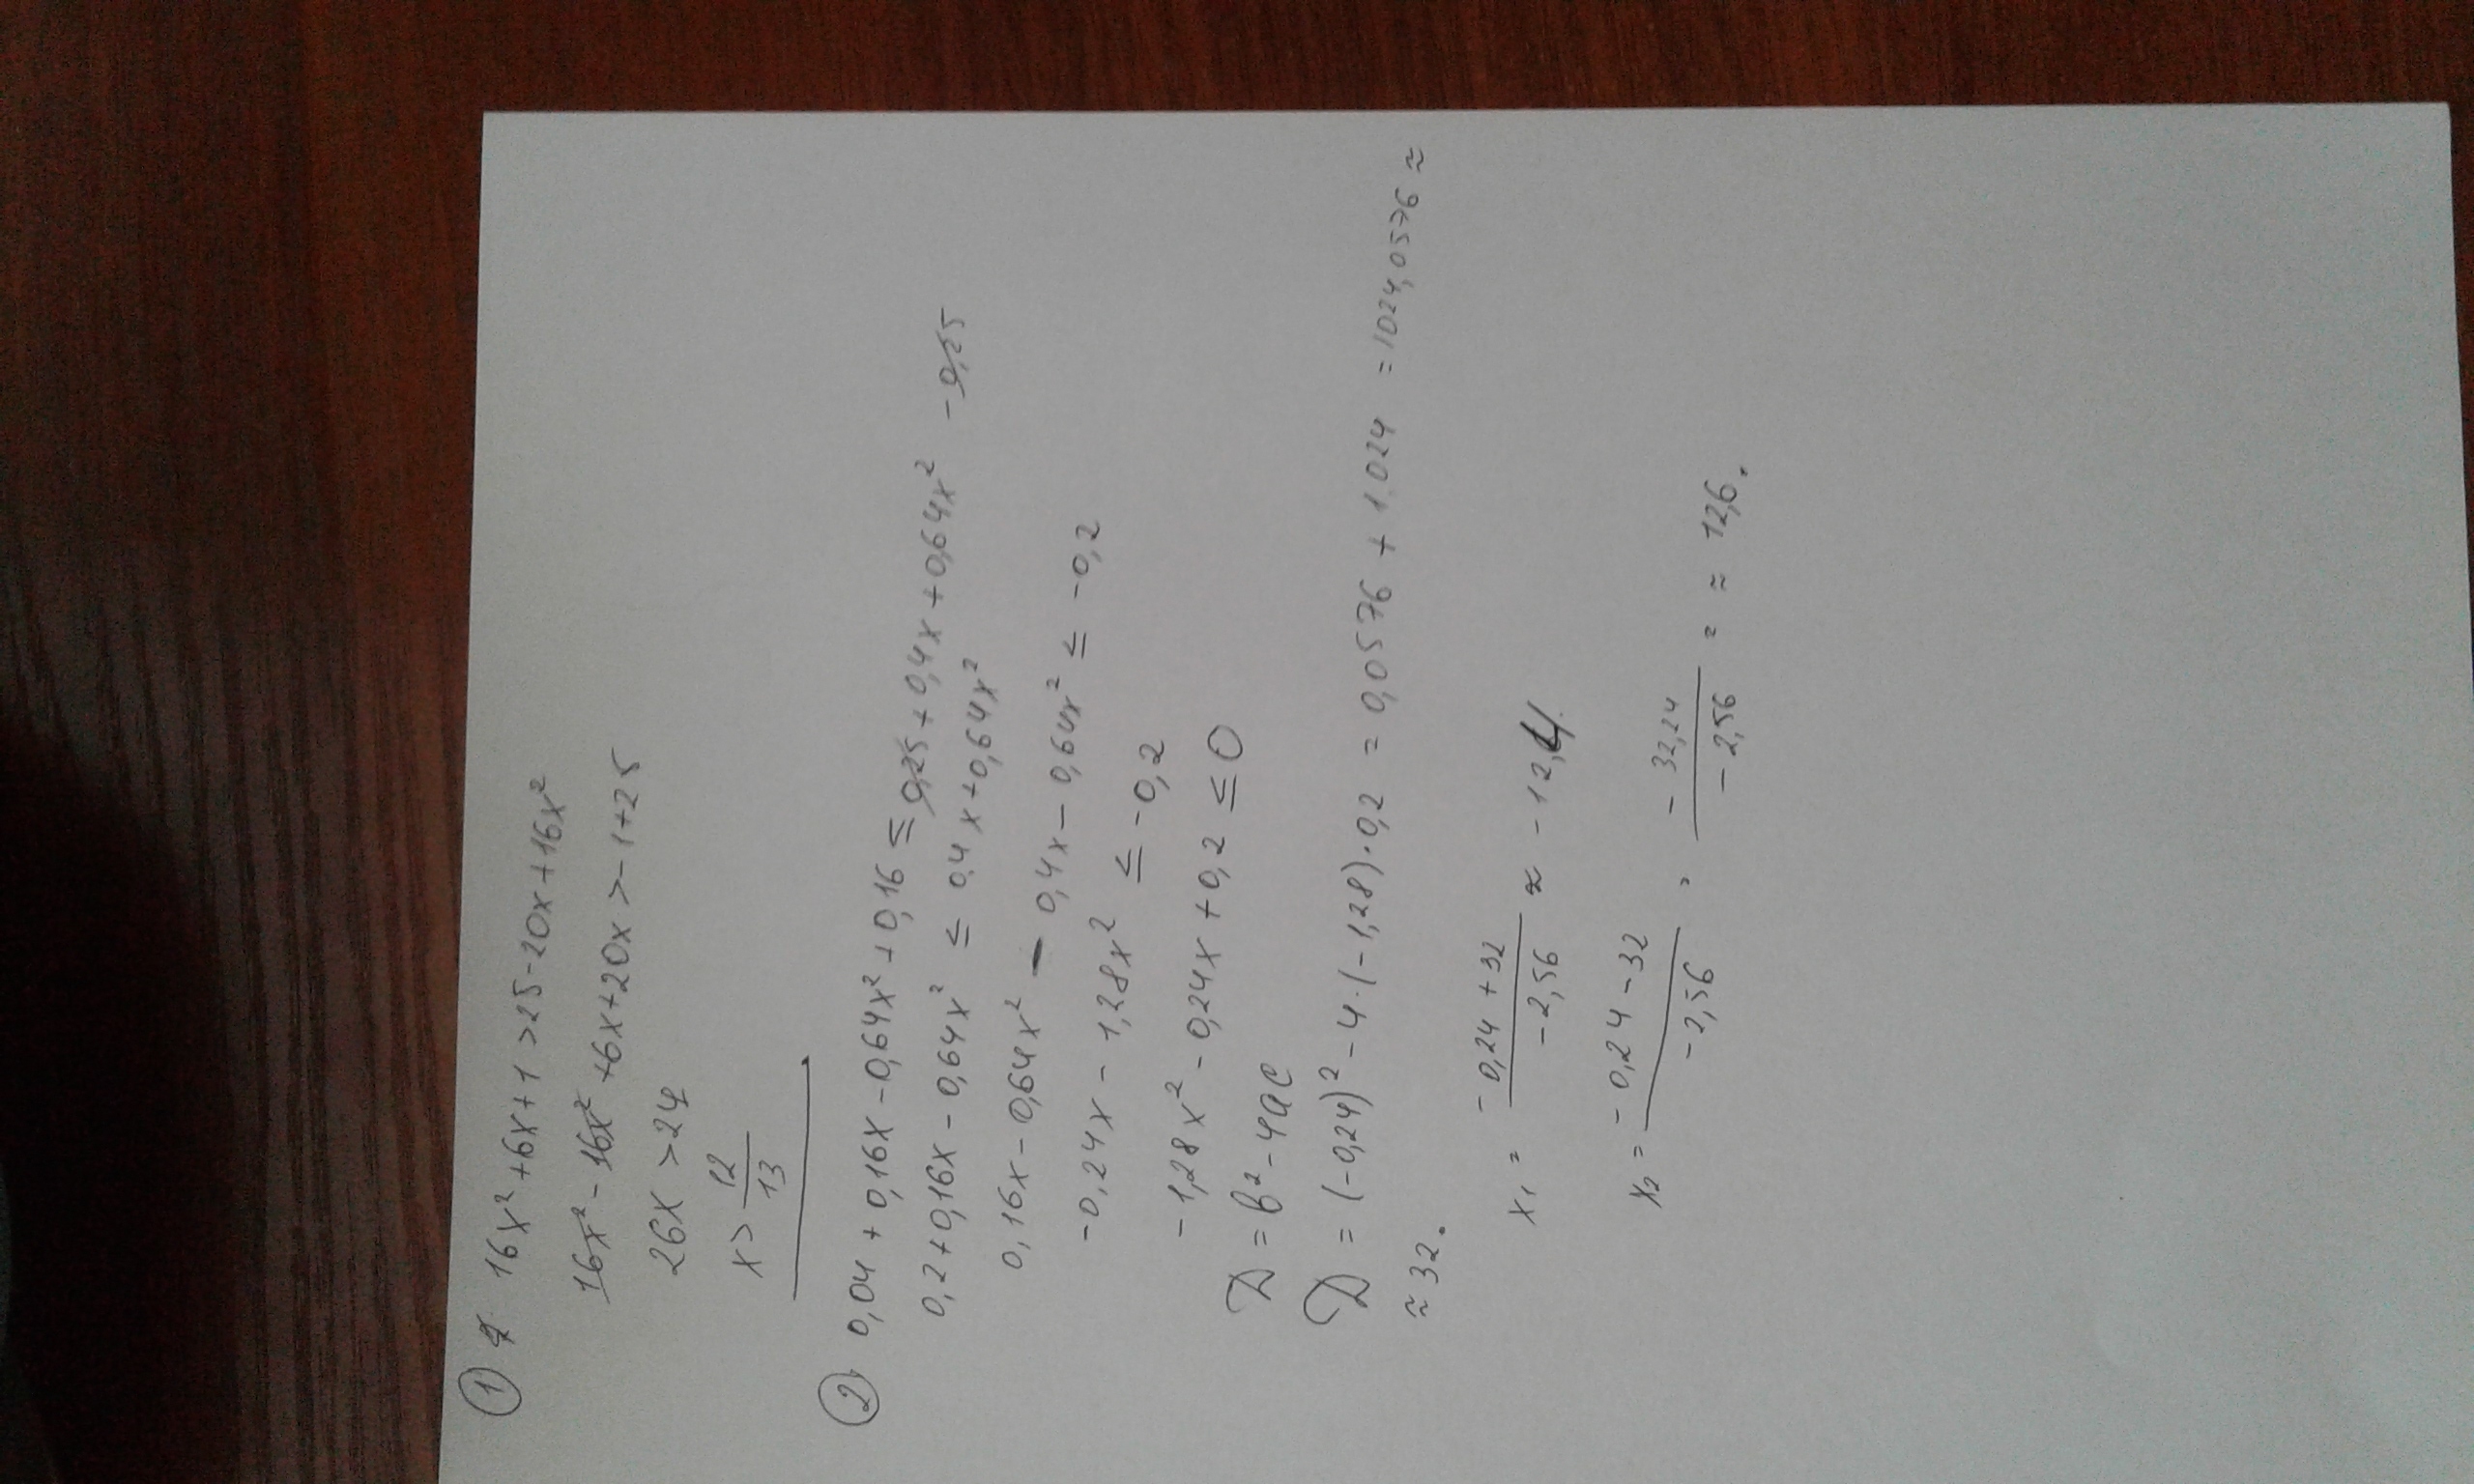 ① 16x² + 6x + 1 > 25 - 20x + 16x²
16x² - 16x² + 6x + 20x > -1 + 25
26x > 24
x > 12/13
② 0,04 + 0,16x - 0,64x² + 0,16 ≤ 0,25 + 0,4x + 0,64x² - 0,25
0,2 + 0,16x - 0,64x² ≤ 0,4x + 0,64x²
0,16x - 0,64x² - 0,4x - 0,64x² ≤ -0,2
-0,24x - 1,28x² ≤ -0,2
-1,28x² - 0,24x + 0,2 ≤ 0
D = b² - 4ac
D = (-0,24)² - 4·(-1,28)·0,2 = 0,0576 + 1.024 = 1024,0576 ≈
≈ 32.
x₁ = (-0,24 + 32)/(-2,56) ≈ -12,4
x₂ = (-0,24 - 32)/(-2,56) = (-32,24)/(-2,56) = ≈ 12,6.